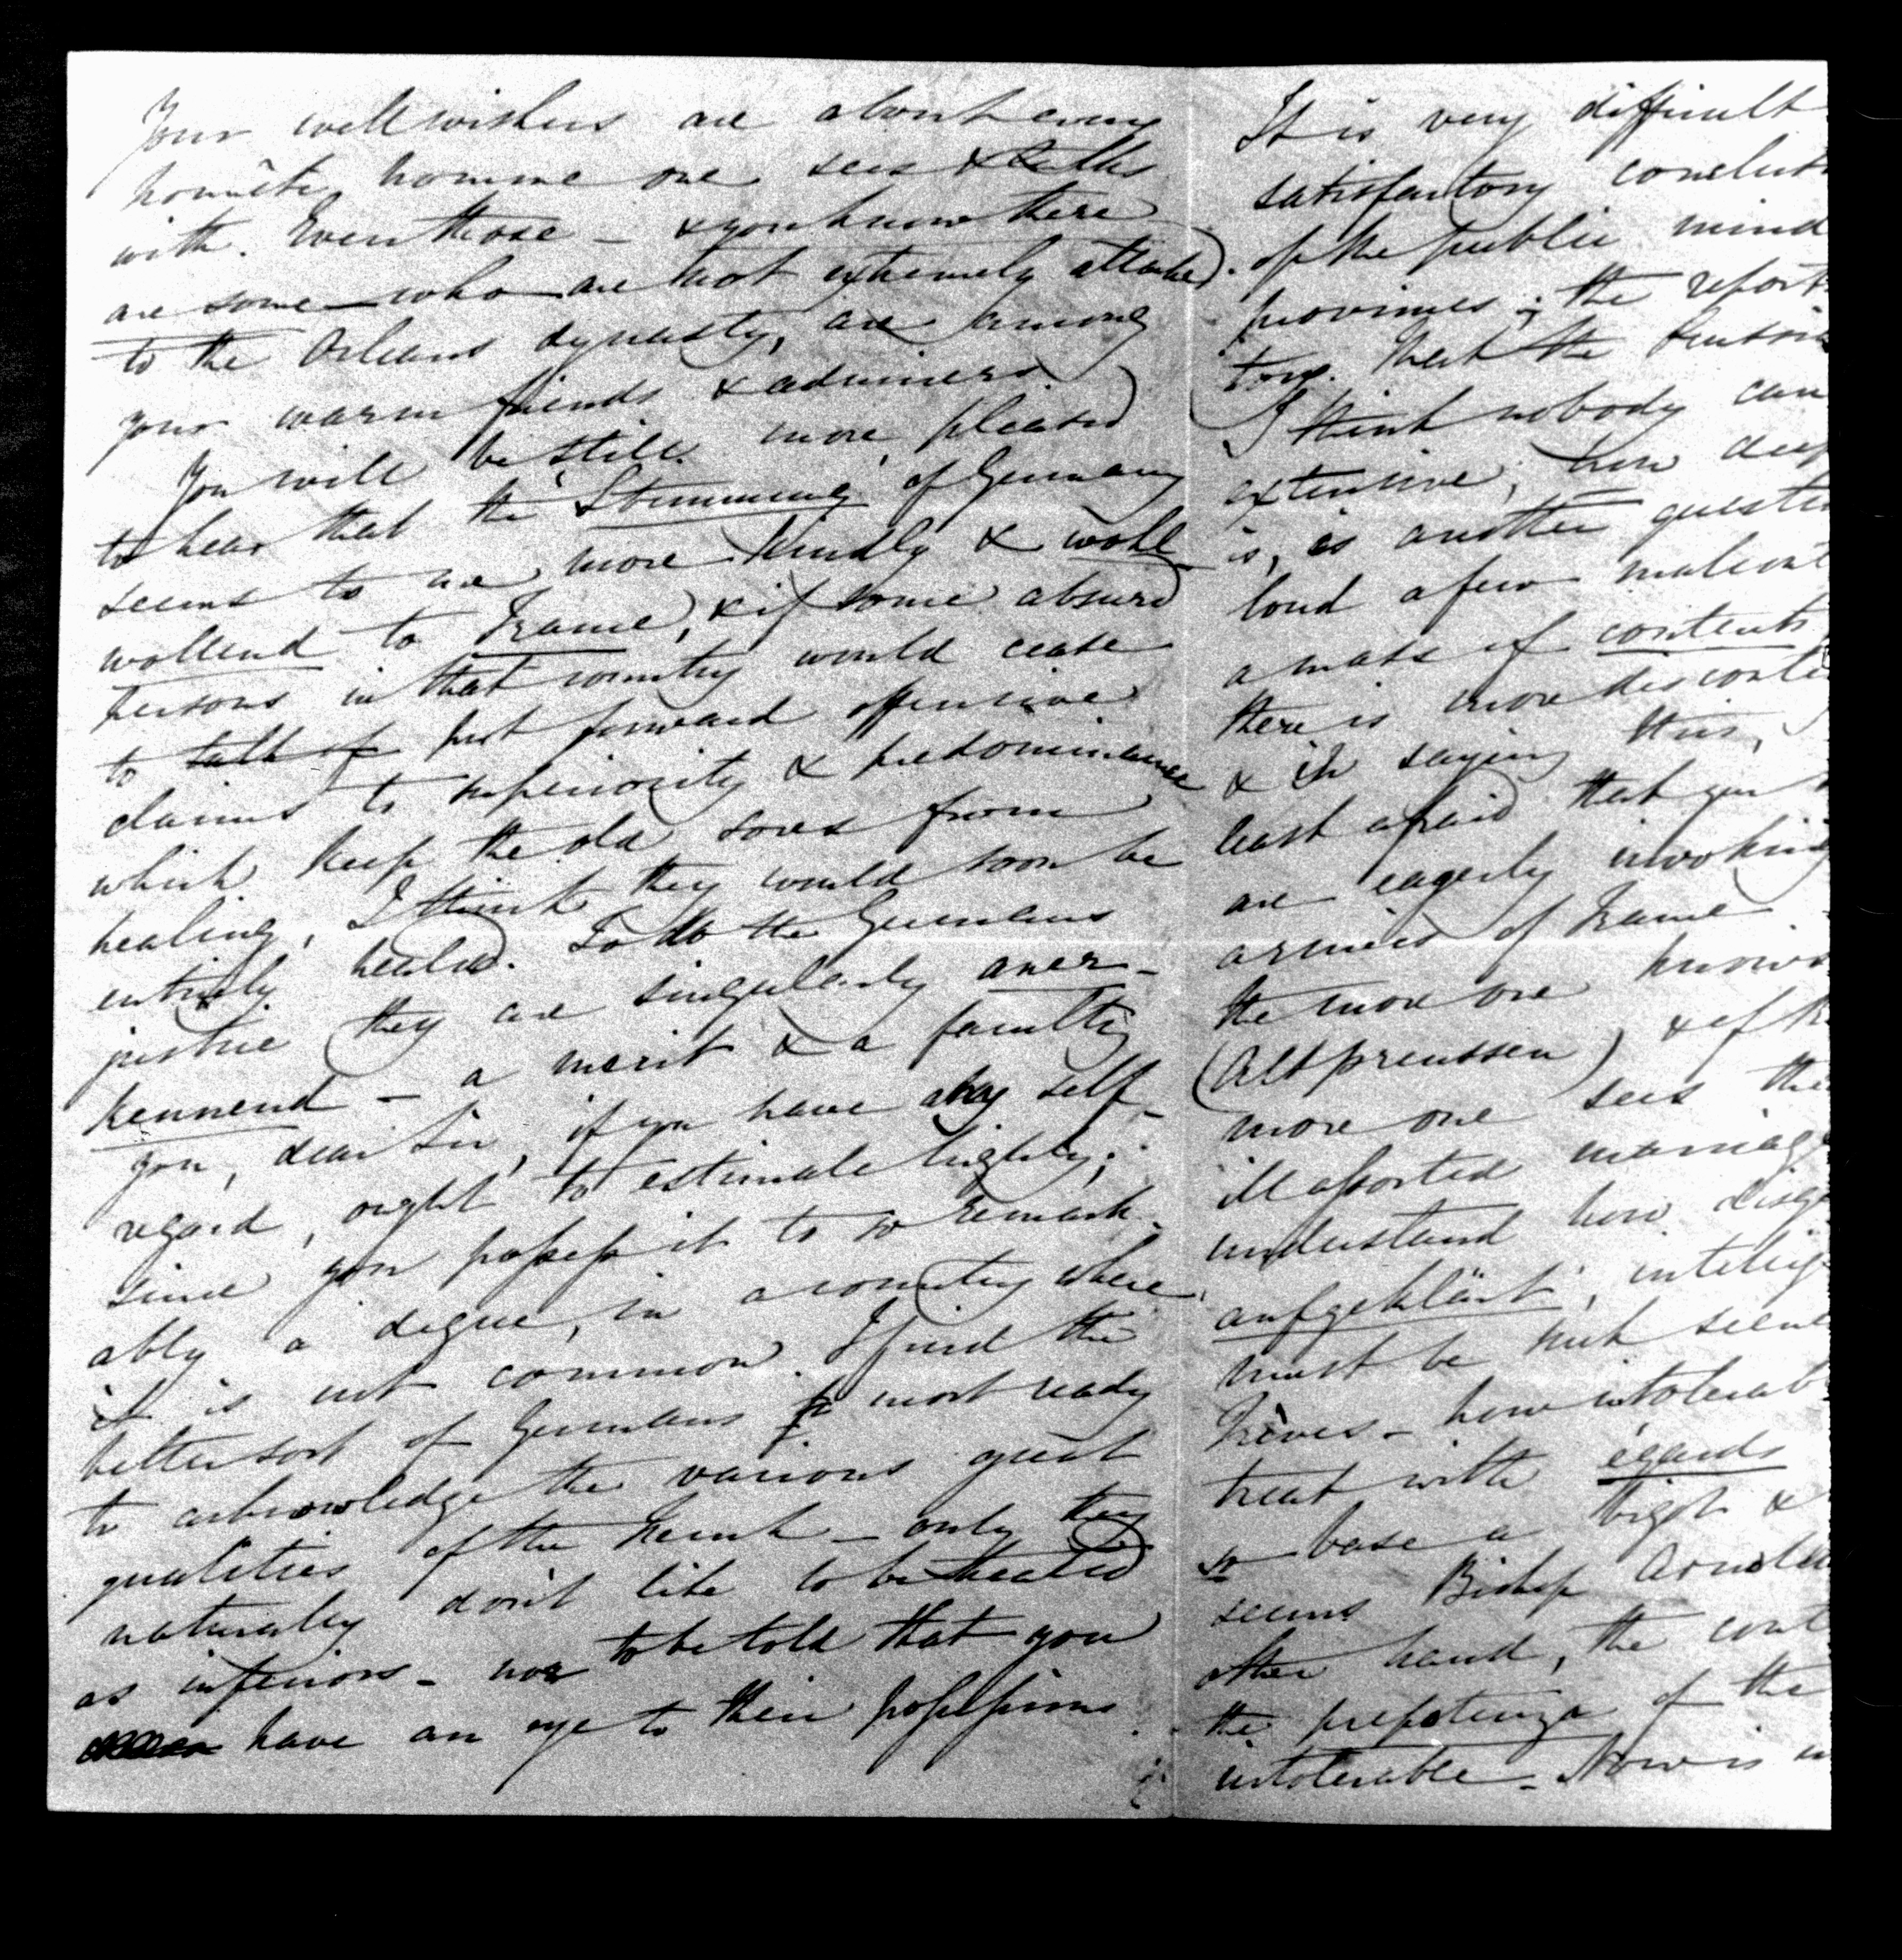 Your wellwishers are about every
honnête homme one sees & talks
with. Even those – & you know there
are some – who are not extremely attached
to the Orleans dynasty, are among
your warm friends & admirers.
You will be still more pleased
to hear that the Stimmung of Germany
seems to me more kindly & wohl
wollend to France, & if some absurd
persons in that country would cease
to talk of put forward offensive
claims to superiority & predominance
which keep the old sores from
healing, I think they would soon be
entirely healed. To do the Germans
justice they are singularly aner-
kennend – a merit & a faculty
you, dear Sir, if you have any self-
regard, ought to estimate highly;
since you possess it to so remark-
ably a degree, in a country where
it is not common. I find the
better sort of Germans most ready
to acknowledge the various great
qualities of the French – only they
naturally don't like to be treated
as inferiors – nor to be told that you
have an eye to their possessions.
It is very difficult
satisfactory conclus
of the public mind
provinces; the report
tory. That the
I think nobody can
extensive; how deep
is, is another questi
loud a few malcont
a mass of contents
there is more disconte
& in saying this,
least afraid that you
are eagerly invoking
armies of France
the more one knows
(Altpreussen) & of
more one sees the
ill assorted marriag
understand how disg
aufgeklärt, intellig
must be such scene
Trèves – how intolerab
treat with égards
so base a bigot &
seems Bishop Arnoldi
other hand, the cont
the prepotenza of the
intolerable. Now is